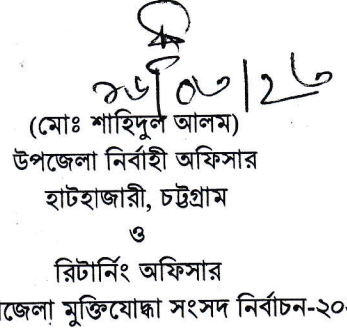 (মোঃ শাহিদুল আলম)
উপজেলা নির্বাহী অফিসার
হাটহাজারী, চট্টগ্রাম
ও
রিটার্নিং অফিসার
জেলা মুক্তিযোদ্ধা সংসদ নির্বাচন-২০